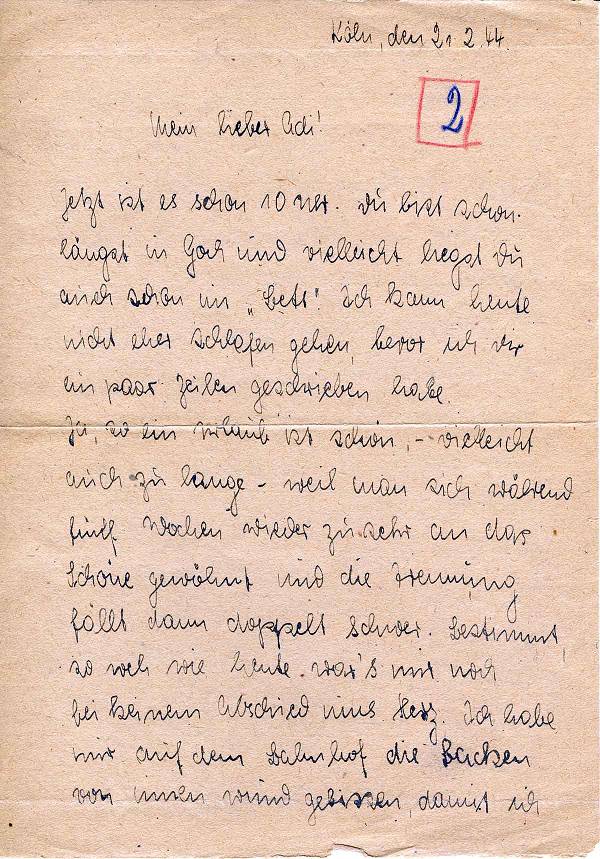 Köln, den 21.2.44.
2
Mein lieber Adi!
Jetzt ist es schon 10 Uhr. Du bist schon
längst in Goch und vielleicht liegst Du
auch schon im „Bett". Ich kann heute
nicht eher schlafen gehen, bevor ich Dir
ein paar Zeilen geschrieben habe.
Ja, so ein Urlaub ist schön, - vielleicht
auch zu lange - weil man sich während
fünf Wochen wieder zu sehr an das
Schöne gewöhnt und die Trennung
fällt dann doppelt schwer. Bestimmt,
so weh wie heute war's mir noch
bei keinem Abschied ums Herz. Ich habe
mir auf dem Bahnhof die Backen
von innen wund gebissen, damit ich